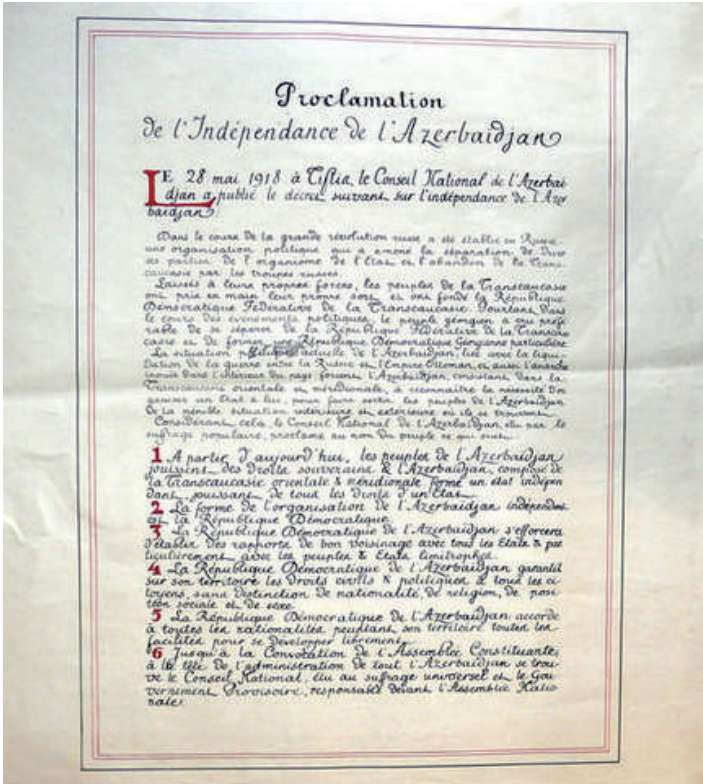 Proclamation
de l'Indépendance de l'Azerbaïdjan
LE 28 mai 1918 à Tiflis, le Conseil National de l'Azerbai
djan a publié le décret suivant sur l'indépendance de l'Azer
baïdjan:
Dans le cours de la grande révolution russe a été établie en Russie
une organisation politique qui a amené la séparation de
ses parties de l'organisme de l'Etat et l'abandon de la Trans
caucasie par les troupes russes.
Laissés à leurs propres forces, les peuples de la Transcaucasie
ont pris en main leur propre sort et ont fondé la République
Démocratique Fédérative de la Transcaucasie. Pourtant, dans
le cours des évènements politiques, le peuple géorgien a cru préfé
rable de se séparer de la République Fédérative de la Transcau
casie et de former une République Démocratique Géorgienne particulière
La situation politique actuelle de l'Azerbaidjan, liée avec la liqui
dation de la guerre entre la Russie et l'Empire Ottoman, et aussi l'anarchie
inouïe dans l'intérieur du pays forcent l'Azerbaïdjan, consistant dans la
Transcaucasie orientale et méridionale, à reconnaître la nécessité d'or
ganiser un Etat à lui, pour faire sortir les peuples de l'Azerbaidjan
de la pénible situation intérieure et extérieure où ils se trouvent.
Considérant cela, le Conseil National de l'Azerbaïdjan, élu par le
suffrage populaire, proclame au nom du peuple ce qui suit:
1 A partir d'aujourd'hui, les peuples de l'Azerbaïdjan
jouissent des droits souverains & l'Azerbaïdjan, composé de
la Transcaucasie orientale & méridionale forme un état indépen
dant, jouissant de tous les droits d'un Etat.
2 La forme de l'organisation de l'Azerbaïdjan indépendant
est la République Démocratique.
3 La République Démocratique de l'Azerbaïdjan s'efforcera
d'établir des rapports de bon voisinage avec tous les Etats & par
ticulièrement avec les peuples & Etats limitrophes.
4 La République Démocratique de l'Azerbaïdjan garantit
sur son territoire les droits civils & politiques à tous les ci
toyens, sans distinction de nationalité, de religion, de posi
tion sociale et de sexe.
5 La République Démocratique de l'Azerbaïdjan accorde
à toutes les nationalités peuplant son territoire toutes les
facilités pour se développer librement.
6 Jusqu'à la Convocation de l'Assemblée Constituante,
à la tête de l'administration de tout l'Azerbaïdjan se trou
ve le Conseil National, élu au suffrage universel et le Gou
vernement Provisoire, responsable devant l'Assemblée Natio
nale.